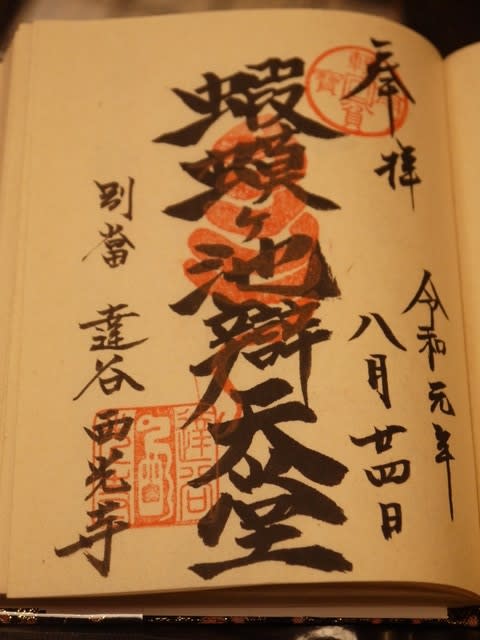 奉拝
令和元年
八月廿四日
蝦蟆ヶ池辯天堂
別當 達谷西光寺